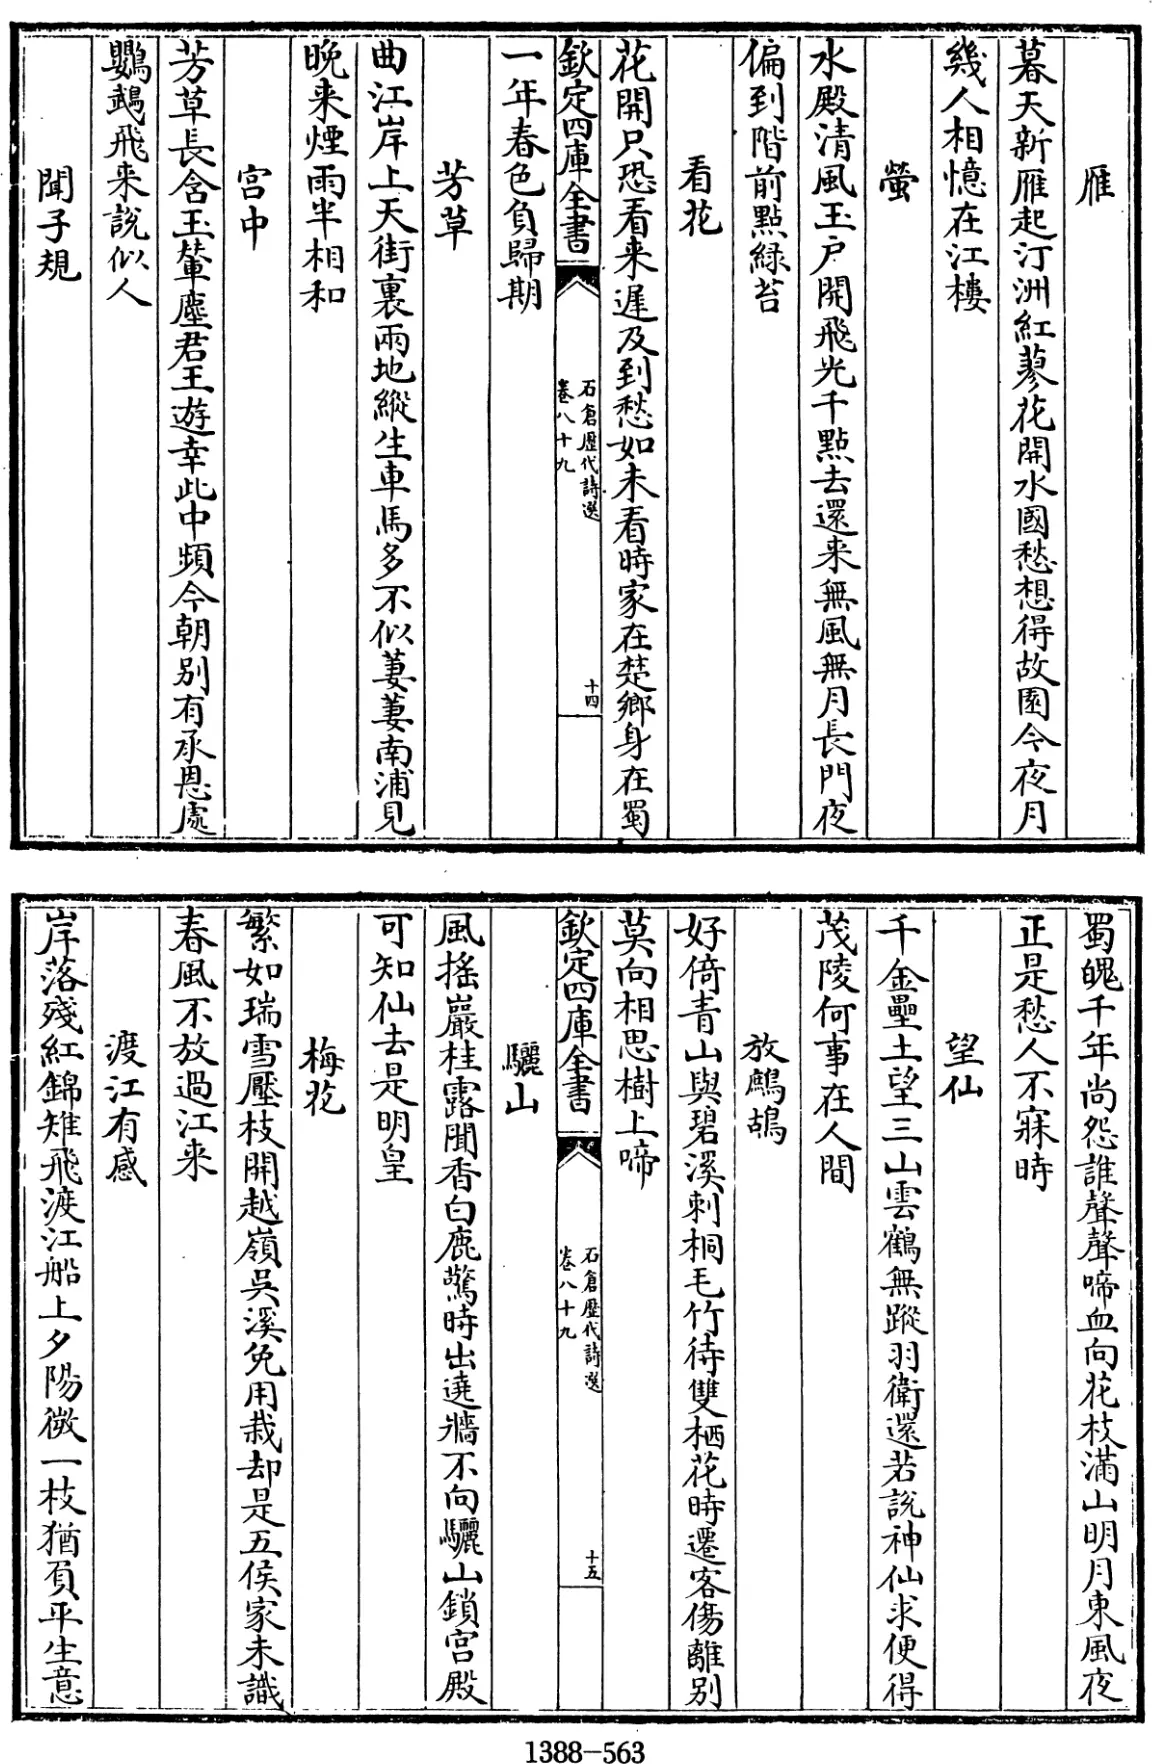 雁
暮天新雁起汀洲紅蓼花開水國愁想得故園今夜月
幾人相憶在江樓
螢
水殿清風玉戸開飛光千點去還来無風無月長門夜
偏到階前點緑苔
看花
花開只恐看来遲及到愁如未看時家在楚鄉身在蜀
一年春色負歸期
欽定四庫全書
石倉歴代詩選
卷八十九
十四
芳草
曲江岸上天街裏兩地縱生車馬多不似萋萋南浦見
晚来煙雨半相和
宫中
芳草長含玉輦塵君王遊幸此中頻今朝别有承恩處
鸚鵡飛来說似人
聞子規
蜀魄千年尚怨誰聲聲啼血向花枝滿山明月東風夜
正是愁人不寐時
望仙
千金壘土望三山雲鶴無蹤羽衛還若說神仙求便得
茂陵何事在人間
放鷓鴣
好倚青山與碧溪刺桐毛竹待雙栖花時遷客傷離别
莫向相思樹上啼
欽定四庫全書
石倉歴代詩選
卷八十九
十五
驪山
風摇巖桂露聞香白鹿驚時出遶牆不向驪山鎖宫殿
可知仙去是明皇
梅花
繁如瑞雪壓枝開越嶺吳溪免用栽却是五侯家未識
春風不放過江来
渡江有感
岸落殘紅錦雉飛渡江船上夕陽微一枝猶負平生意
1388-563